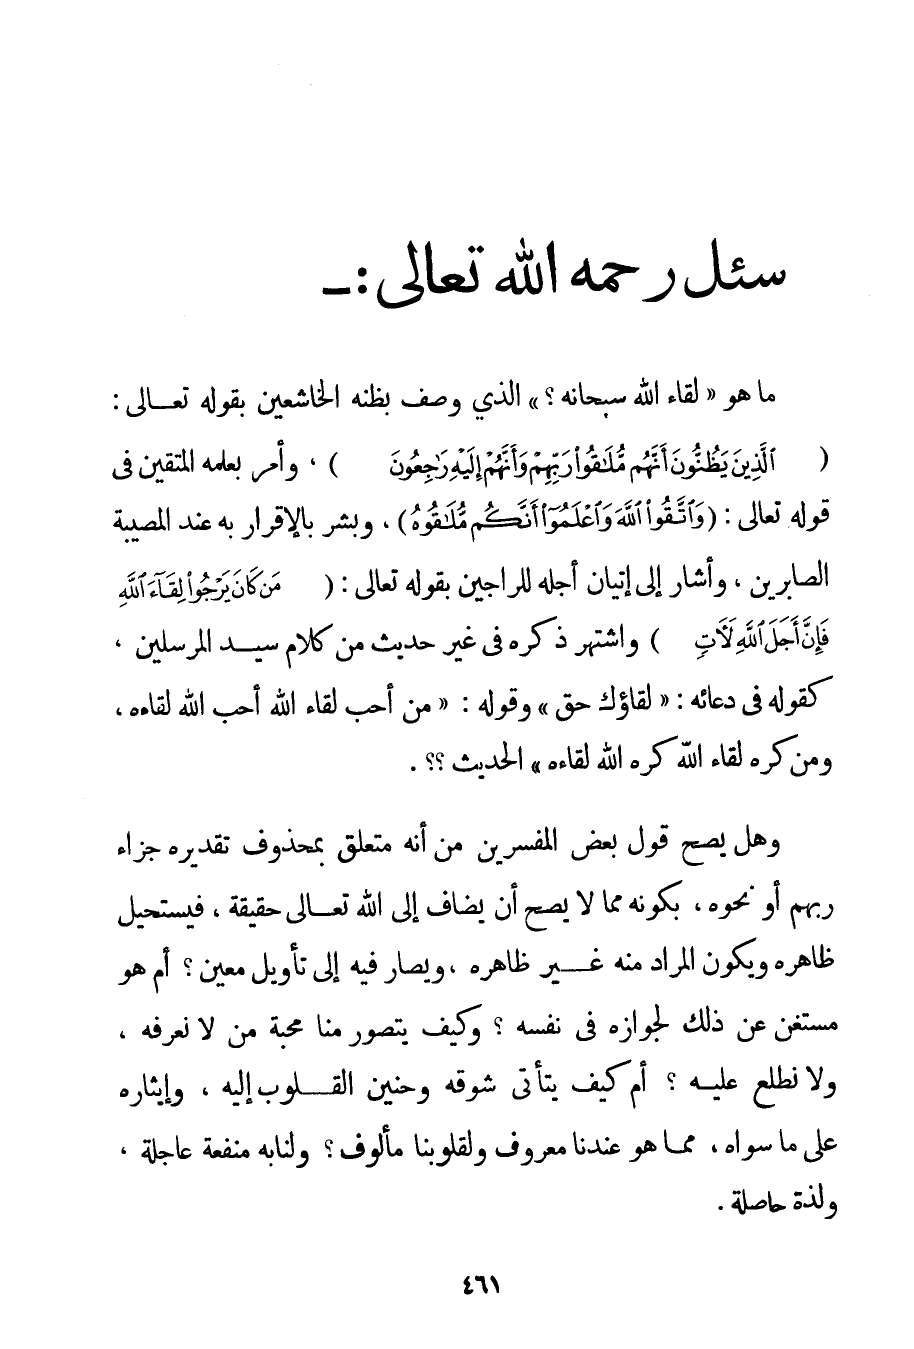 سئل رحمه الله تعالى :ـ
ما هو « لقاء الله سبحانه ؟ » الذي وصف بظنه الخاشعين بقوله تعــالى :
( ٱلَّذِينَ يَظُنُّونَ أَنَّهُم مُّلَٰقُوا۟ رَبِّهِمْ وَأَنَّهُمْ إِلَيْهِ رَٰجِعُونَ ) ، وأمر بعلمه المتقين فى
قوله تعالى : ( وَٱتَّقُوا۟ ٱللَّهَ وَٱعْلَمُوٓا۟ أَنَّكُم مُّلَٰقُوهُ ) ، وبشر بالإقرار به عند المصيبة
الصابرين ، وأشار إلى إتيان أجله للراجين بقوله تعالى : ( مَن كَانَ يَرْجُوا۟ لِقَآءَ ٱللَّهِ
فَإِنَّ أَجَلَ ٱللَّهِ لَآتٍ ) واشتهر ذكره فى غير حديث من كلام سيــد المرسلين ،
كقوله فى دعائه : « لقاؤك حق » وقوله : « من أحب لقاء الله أحب الله لقاءه ،
ومن كره لقاء الله كره الله لقاءه » الحديث ؟؟ .
وهل يصح قول بعض المفسرين من أنه متعلق بمحذوف تقديره جزاء
ربهم أو نحوه ، بكونه مما لا يصح أن يضاف إلى الله تعــالى حقيقة ، فيستحيل
ظاهره ويكون المراد منه غــير ظاهره ، ويصار فيه إلى تأويل معين ؟ أم هو
مستغن عن ذلك لجوازه فى نفسه ؟ وكيف يتصور منا محبة من لا نعرفه ،
ولا نطلع عليــه ؟ أم كيف يتأتى شوقه وحنين القــلوب إليه ، وإيثاره
على ما سواه ، ممــا هو عندنا معروف ولقلوبنا مألوف ؟ ولنا به منفعة عاجلة ،
ولذة حاصلة .
٤٦١